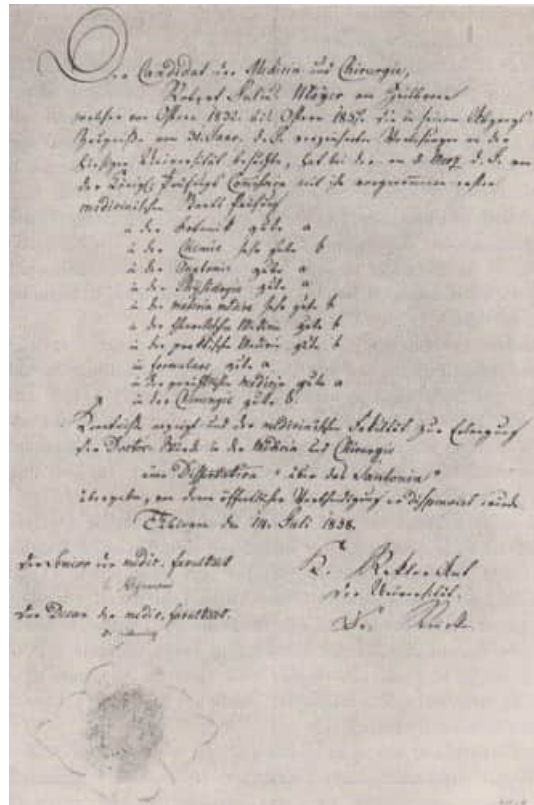 Der Candidat der Medicin und Chirurgie,
Robert Julius Mayer aus Heilbronn
welcher von Ostern 1832. bis Ostern 1837. die in seinem Abgangs
Zeugnisse vom 31. Jan. d. J. verzeichneten Vorlesungen an der
hiesigen Universität besuchte, hat bei der
der Königl. Prüfungs Commission mit ihm vorgenommenen ersten
medicinischen Prüfung
in der Botanik gute a
in der Chemie sehr gute b
in der Anatomie gute a
in der Physiologie gute a
in der materia medica sehr gute b
in der theoretischen Medicin gute b
in der praktischen Medicin gute b
in formulare gute a
in der gerichtlichen Medicin gute a
in der Chirurgie gute b.
Kenntnisse erzeigt und der medicinischen Fakultät zur Erlangung
der Doctor-Würde in der Medicin und Chirurgie
eine Dissertation "über das Santonin"
übergeben, von deren öffentlicher Vertheidigung er dispensirt wurde.
Tübingen den 14. Juli 1838.
Der Senior der medic. Facultaet
K. Rektor Amt
der Universität.
Der Decan der medic. Facultaet.